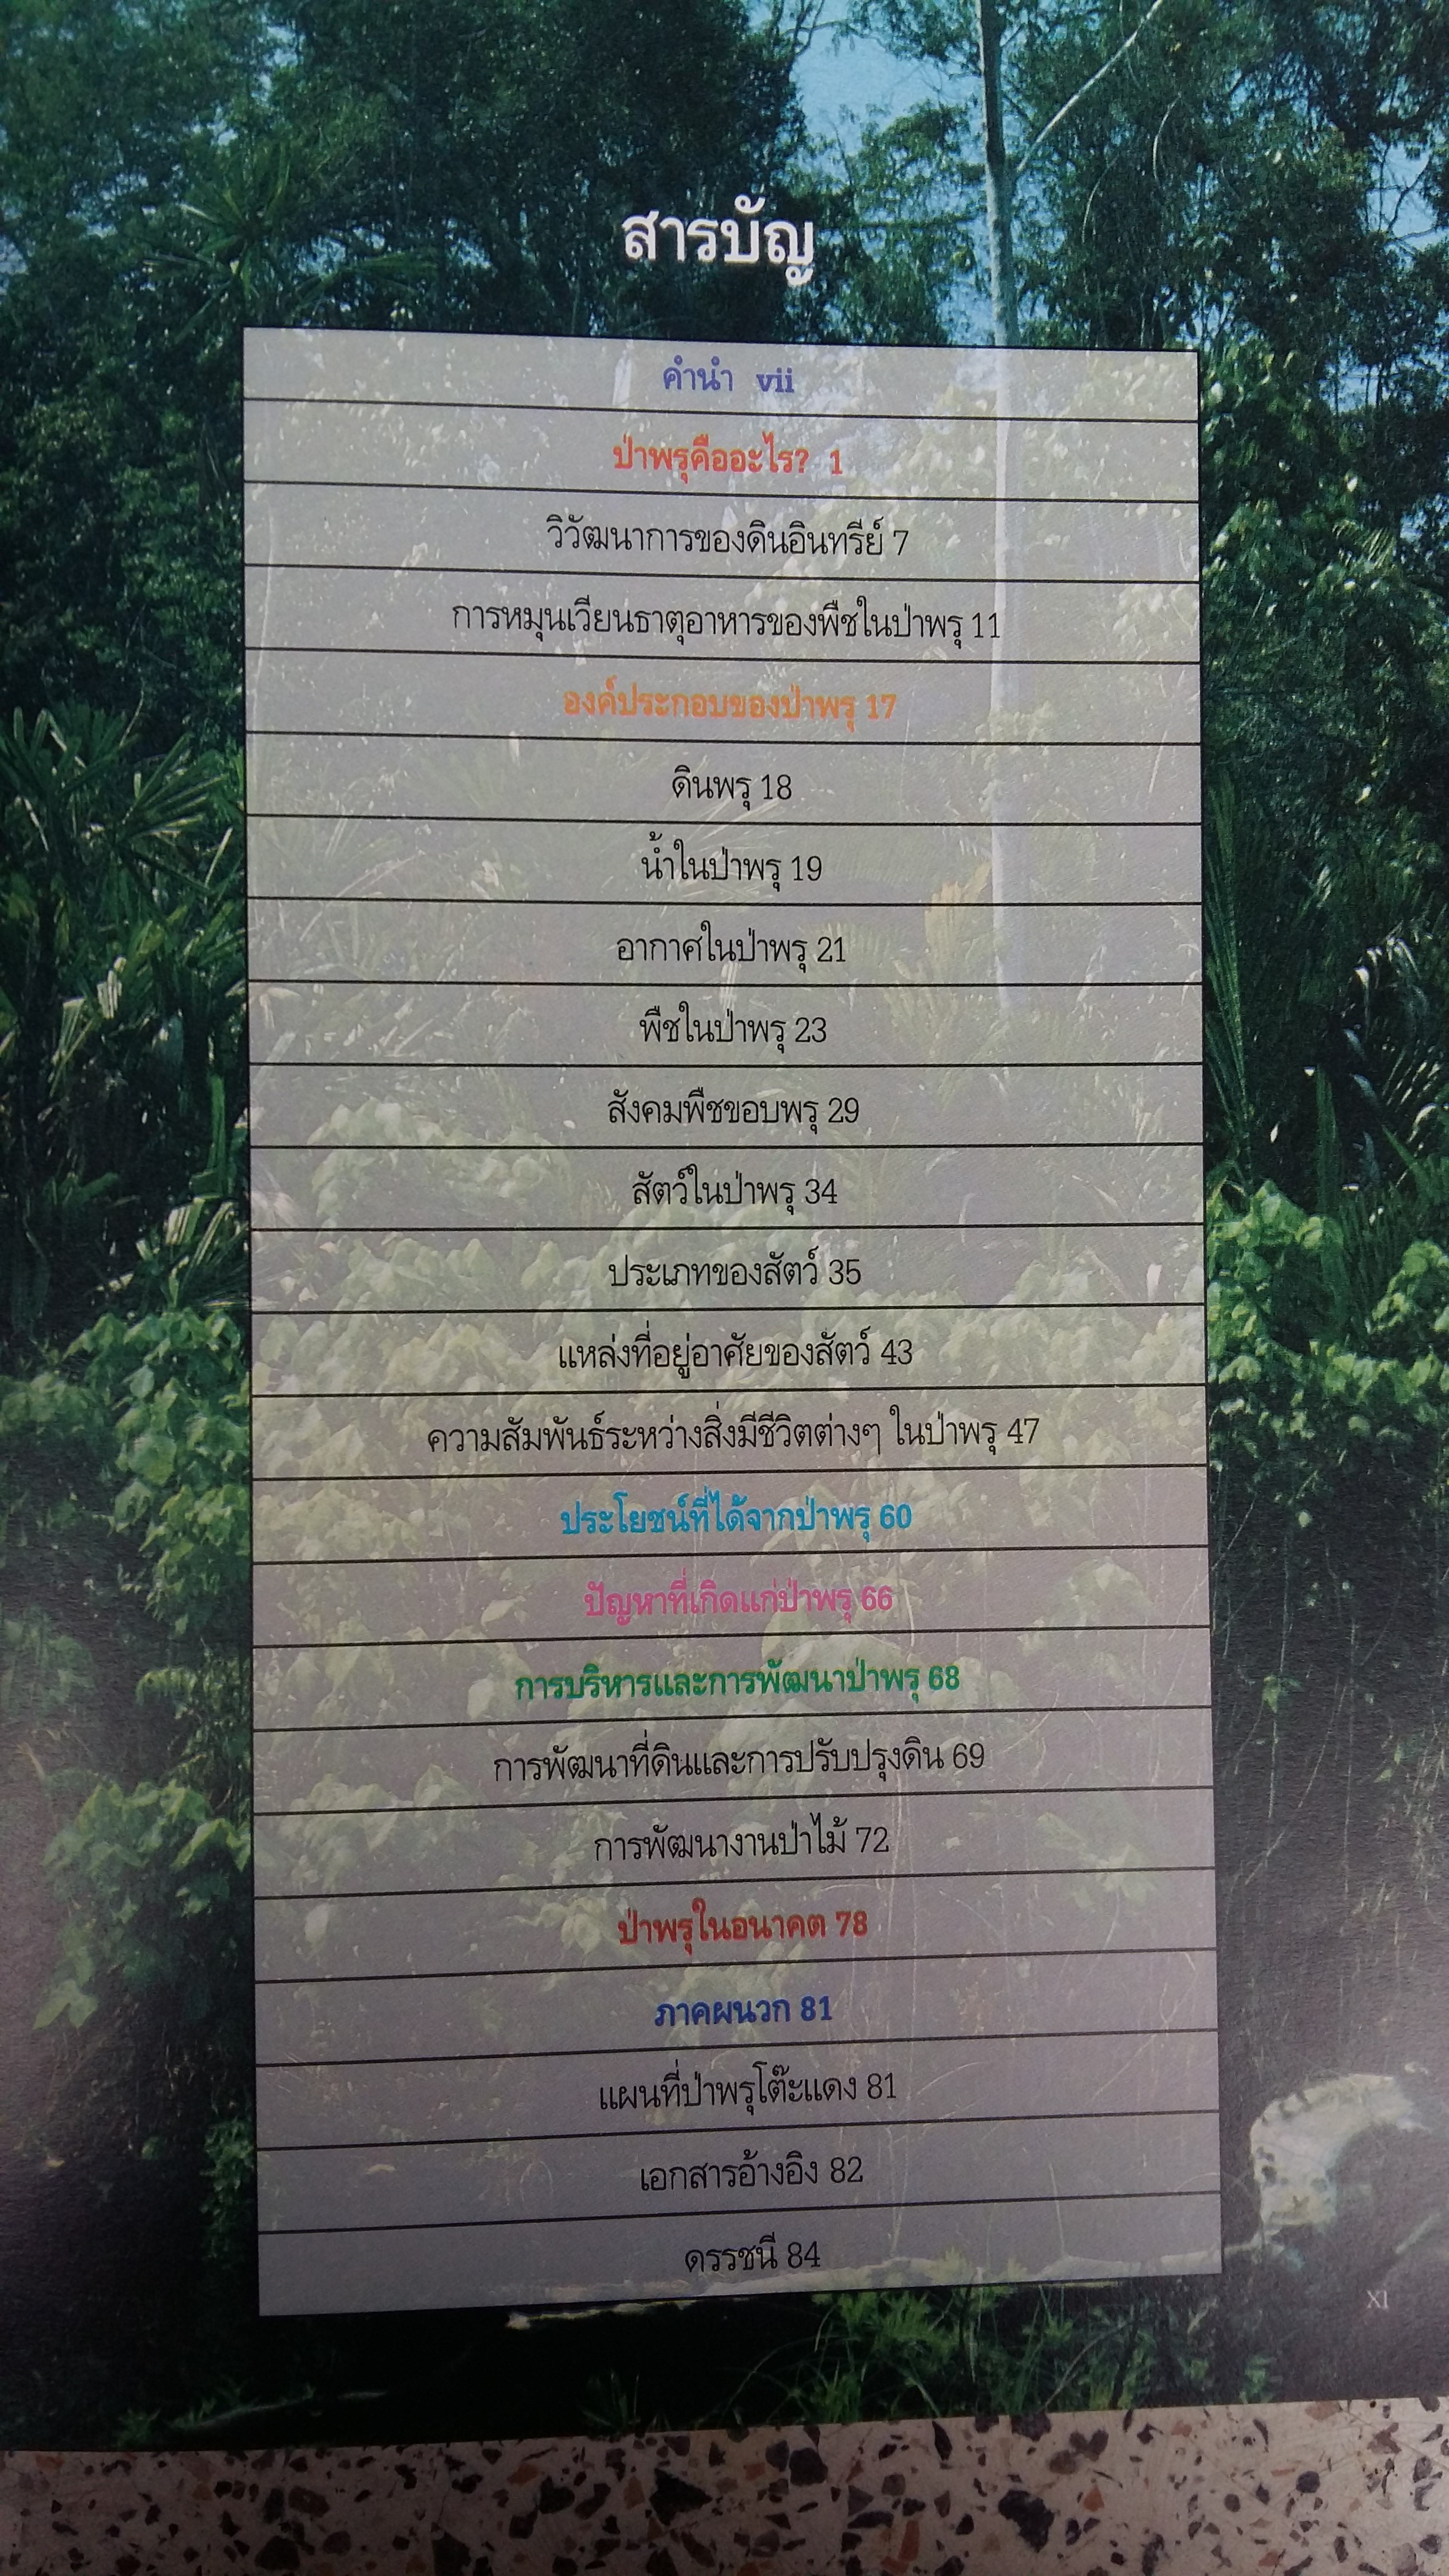 สารบัญ
คำนำ vii
ป่าพรุคืออะไร? 1
วิวัฒนาการของดินอินทรีย์ 7
การหมุนเวียนธาตุอาหารของพืชในป่าพรุ 11
องค์ประกอบของป่าพรุ 17
ดินพรุ 18
น้ำในป่าพรุ 19
อากาศในป่าพรุ 21
พืชในป่าพรุ 23
สังคมพืชขอบพรุ 29
สัตว์ในป่าพรุ 34
ประเภทของสัตว์ 35
แหล่งที่อยู่อาศัยของสัตว์ 43
ความสัมพันธ์ระหว่างสิ่งมีชีวิตต่างๆ ในป่าพรุ 47
ประโยชน์ที่ได้จากป่าพรุ 60
ปัญหาที่เกิดแก่ป่าพรุ 66
การบริหารและการพัฒนาป่าพรุ 68
การพัฒนาที่ดินและการปรับปรุงดิน 69
การพัฒนางานป่าไม้ 72
ป่าพรุในอนาคต 78
ภาคผนวก 81
แผนที่ป่าพรุโต๊ะแดง 81
เอกสารอ้างอิง 82
ดรรชนี 84
XI